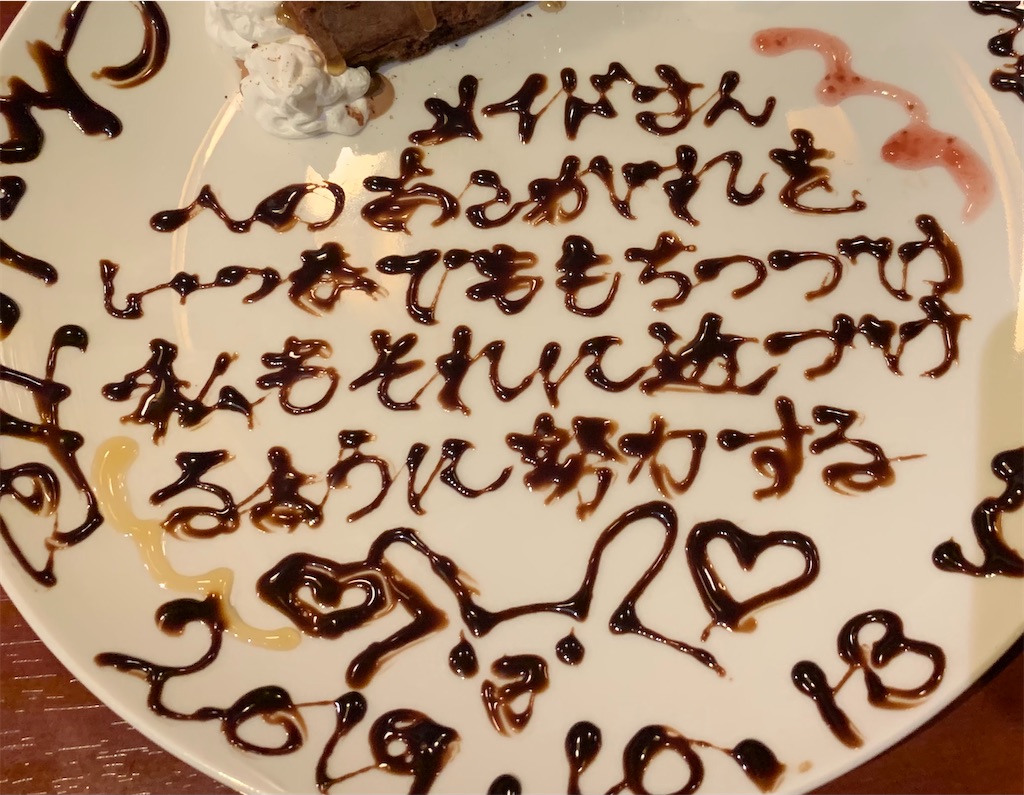 メイドさん
へのあこがれを
いつまでももちつづけ
私もそれに近づけ
るように努力する
2019.10.18